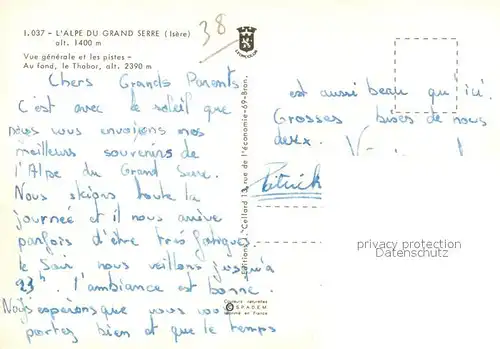 I.037 - L'ALPE DU GRAND SERRE (Isère)
alt. 1400 m
Vue générale et les pistes -
Au fond, le Thabor, alt. 2390 m
38
Chers Grands Parents
C'est avec le soleil que
nous vous envoyons nos
meilleurs souvenirs de
l'Alpe du Grand Serre.
Nous skions toute la
journée et il nous arrive
parfois d'être très fatigués
le soir nous veillons jusqu'à
23h. l'ambiance est bonne.
Nous espérons que vous vous
portez bien et que le temps
Editions J. Cellard 13, rue de l'économie-69-Bron.
Couleurs naturelles
© S.P.A.D.E.M
Imprimé en France
est aussi beau qu'ici.
Grosses bises de nous
deux.
Patrick
privacy protection
Datenschutz